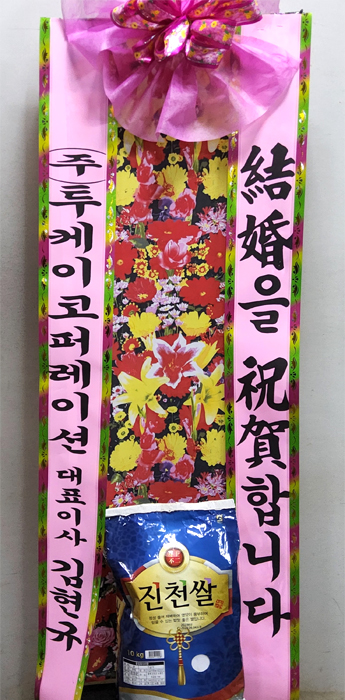 結婚을 祝賀합니다
(주)투케이코퍼레이션 대표이사 김현규
진천쌀
10kg